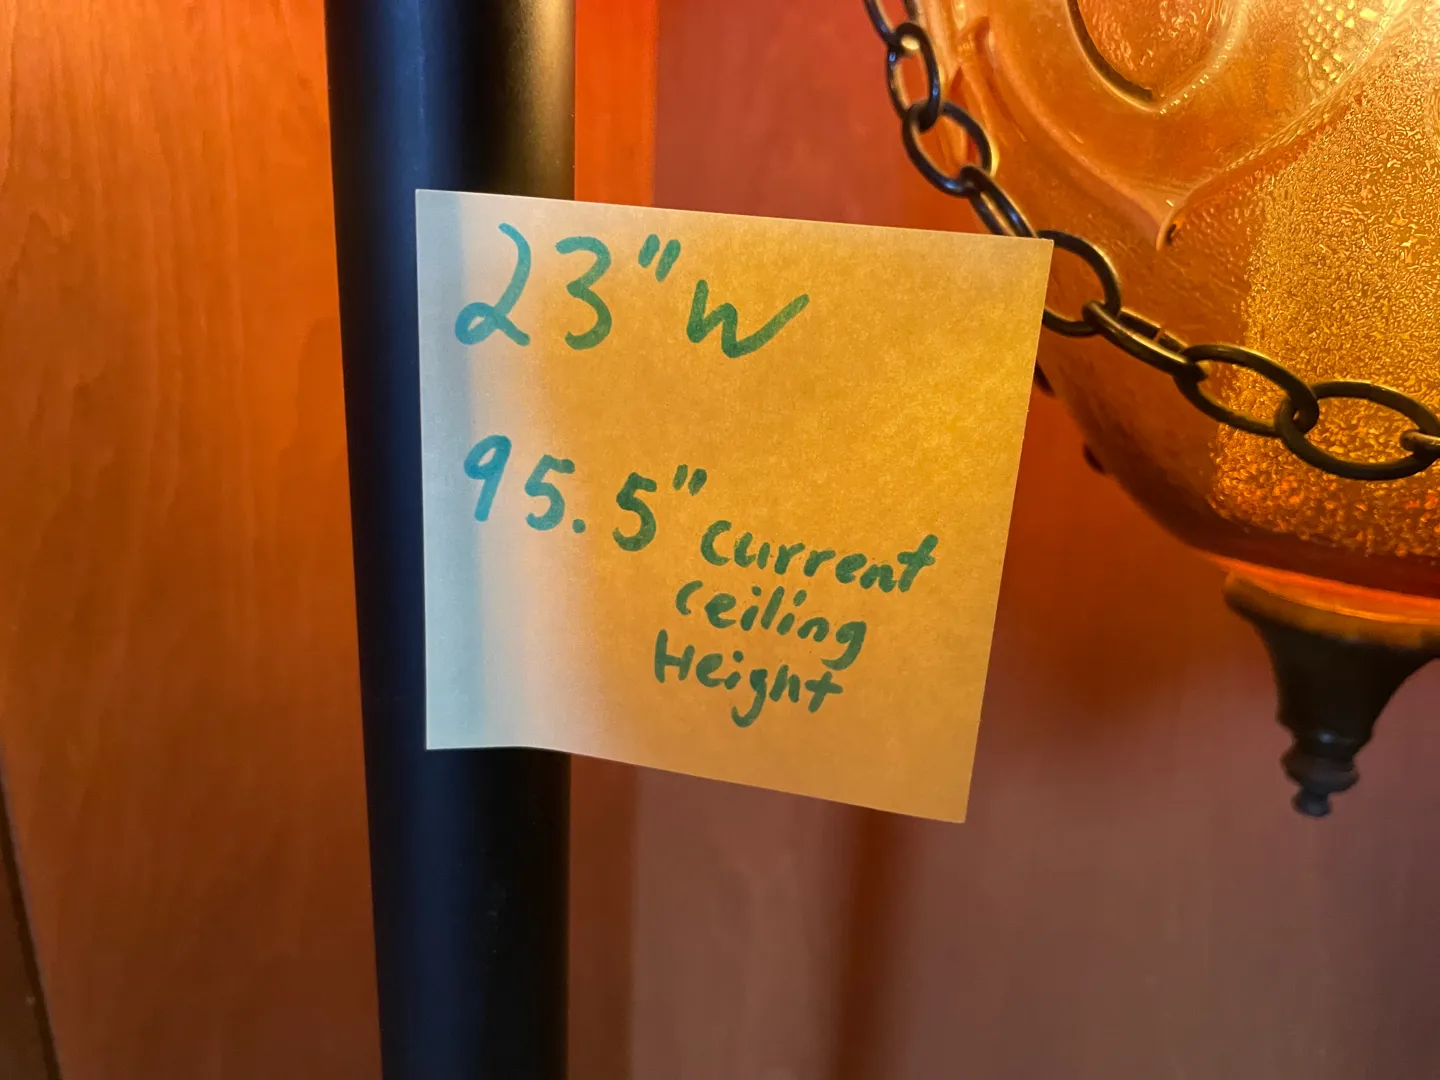 23" W
95.5" current
ceiling
Height